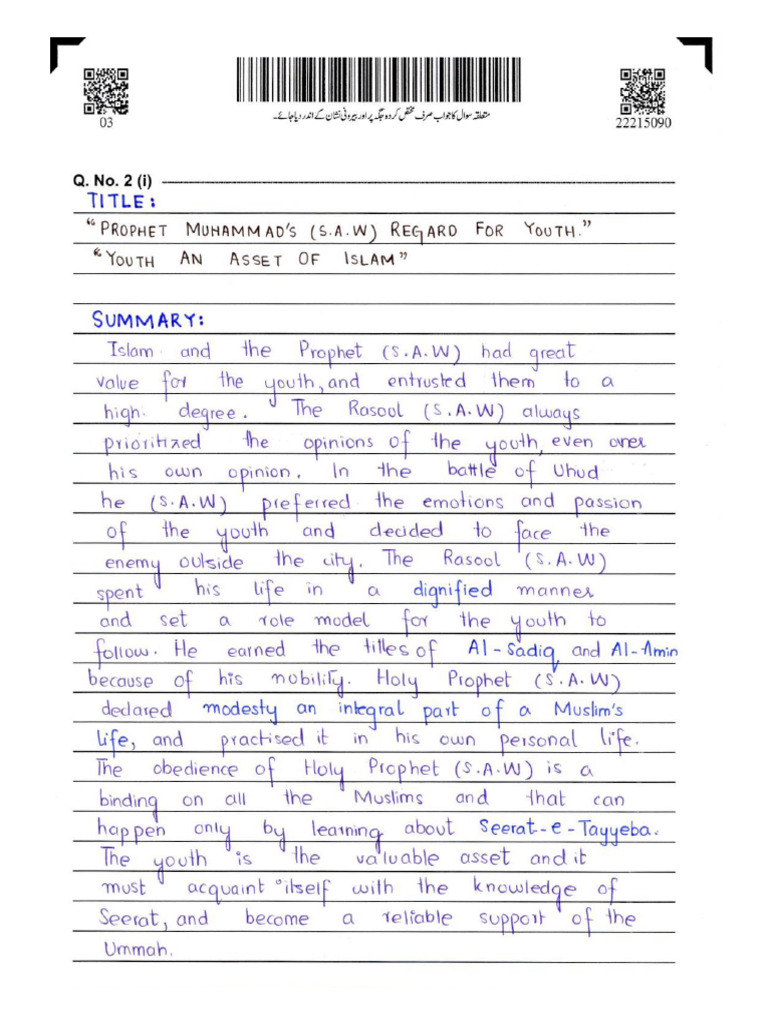 متعلقہ سوال کا جواب صرف مختص کردہ جگہ پر اور بیرونی نشان کے اندر دیا جائے۔
03
22215090
Q. No. 2 (i)
TITLE:
“PROPHET MUHAMMAD'S (S.A.W) REGARD FOR YOUTH.”
“YOUTH AN ASSET OF ISLAM”
SUMMARY:
Islam and the Prophet (S.A.W) had great
value for the youth, and entrusted them to a
high degree. The Rasool (S.A.W) always
prioritized the opinions of the youth, even over
his own opinion. In the battle of Uhud
he (S.A.W) preferred the emotions and passion
of the youth and decided to face the
enemy outside the city. The Rasool (S.A.W)
spent his life in a dignified manner
and set a role model for the youth to
follow. He earned the titles of Al-Sadiq and Al-Amin
because of his nobility. Holy Prophet (S.A.W)
declared modesty an integral part of a Muslim's
life, and practised it in his own personal life.
The obedience of Holy Prophet (S.A.W) is a
binding on all the Muslims and that can
happen only by learning about Seerat-e-Tayyeba.
The youth is the valuable asset and it
must acquaint itself with the knowledge of
Seerat, and become a reliable support of the
Ummah.